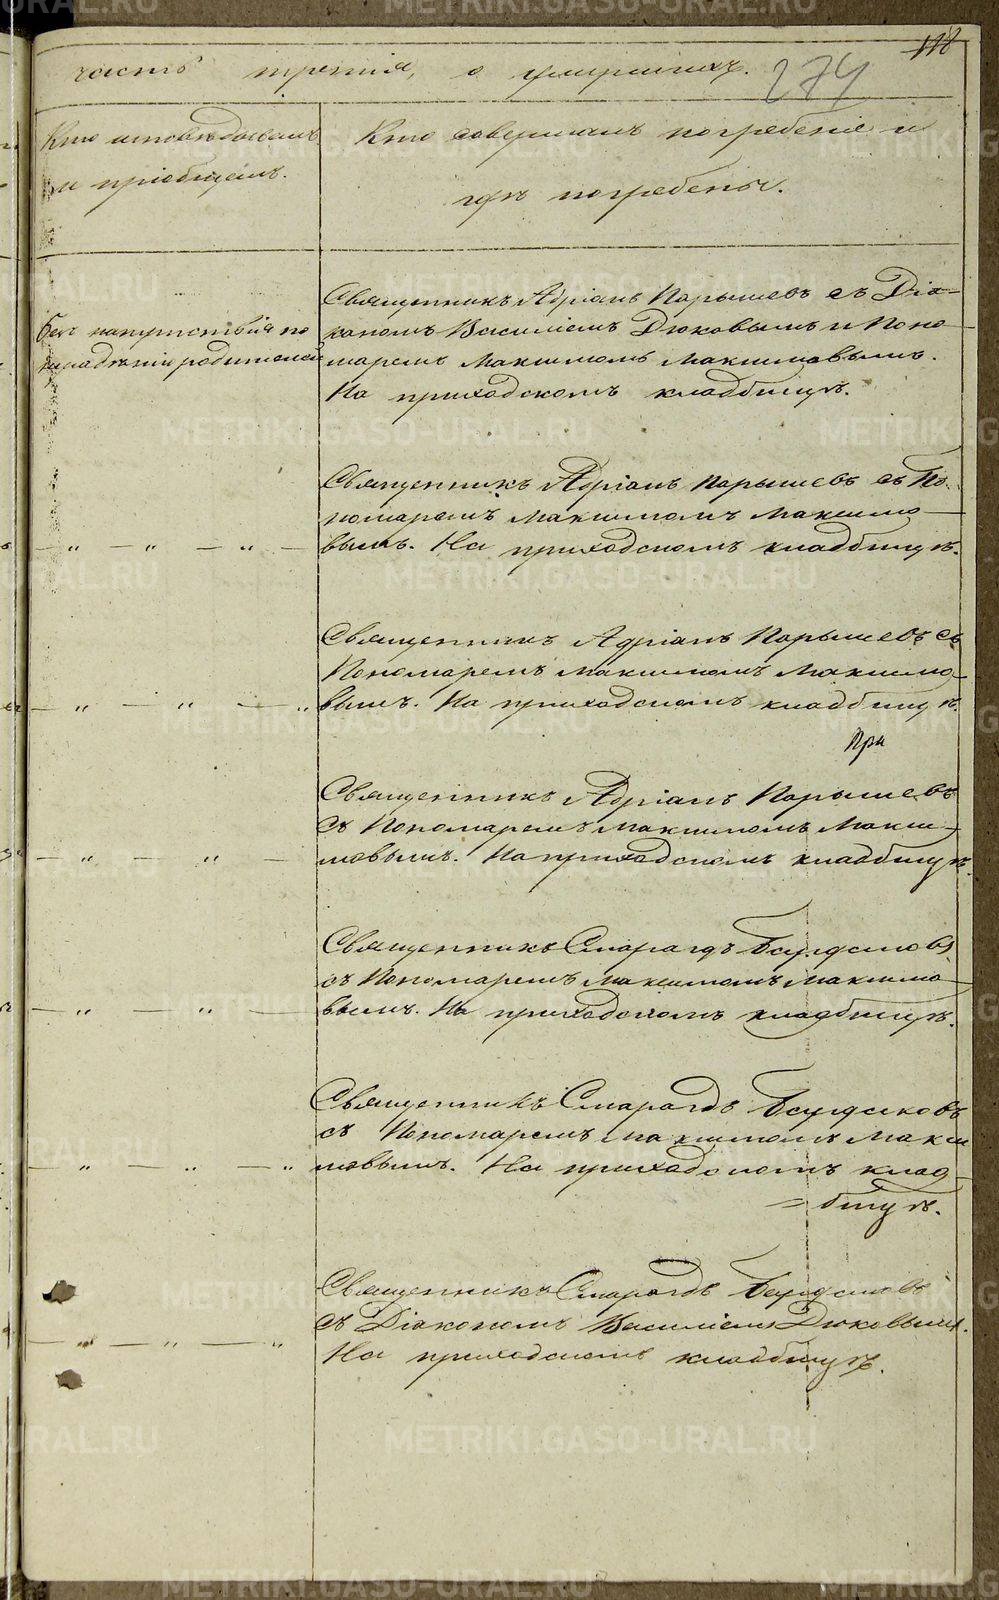 118
часть третія, о умершихъ. 274
Кто исповѣдывалъ
и пріобщалъ.
Кто совершалъ погребеніе и
гдѣ погребены.
Безъ напутствія по
нерадѣнію родителей
Священникъ Адріанъ Парышевъ съ Діа-
кономъ Василіемъ Дюковымъ и Поно
маремъ Максимомъ Максимовымъ.
На приходскомъ кладбищѣ.
Священникъ Адріанъ Парышевъ съ По-
номаремъ Максимомъ Максимо
— „ — „ — „ — вымъ. На приходскомъ кладбищѣ.
Священникъ Адріанъ Парышевъ съ
Пономаремъ Максимомъ Максимо
— „ — „ — „ вымъ. На приходскомъ кладбищѣ.
При
Священникъ Адріанъ Парышевъ
съ Пономаремъ Максимомъ Макси-
— „ — „ — мовымъ. На приходскомъ кладбищѣ.
Священникъ Смарагдъ
съ Пономаремъ Максимомъ Максимо
— „ — „ — вымъ. На приходскомъ кладбищѣ.
Священникъ Смарагдъ
съ Пономаремъ Максимомъ Макси
— „ — „ — „ мовымъ. На приходскомъ клад-
= бищѣ.
Священникъ Смарагдъ
съ Діакономъ Василіемъ Дюковымъ.
— „ — „ — „ На приходскомъ кладбищѣ.
METRIKI.GASO-URAL.RU